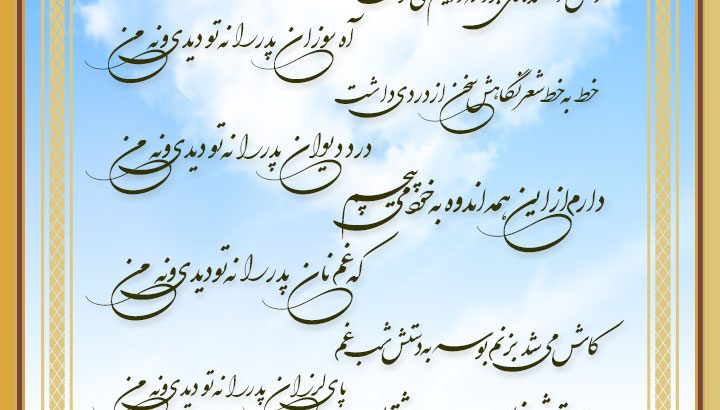 آه سوزان پدر را نه تو دیدی و نه من
خط به خط شعر نگاهش سخن از دردی داشت
درد دیوان پدر را نه تو دیدی و نه من
دارم از این همه اندوه به خود می پیچم
که غم نان پدر را نه تو دیدی و نه من
کاش می شد بزنم بوسه به دستش شب غم
پای لرزان پدر را نه تو دیدی و نه من